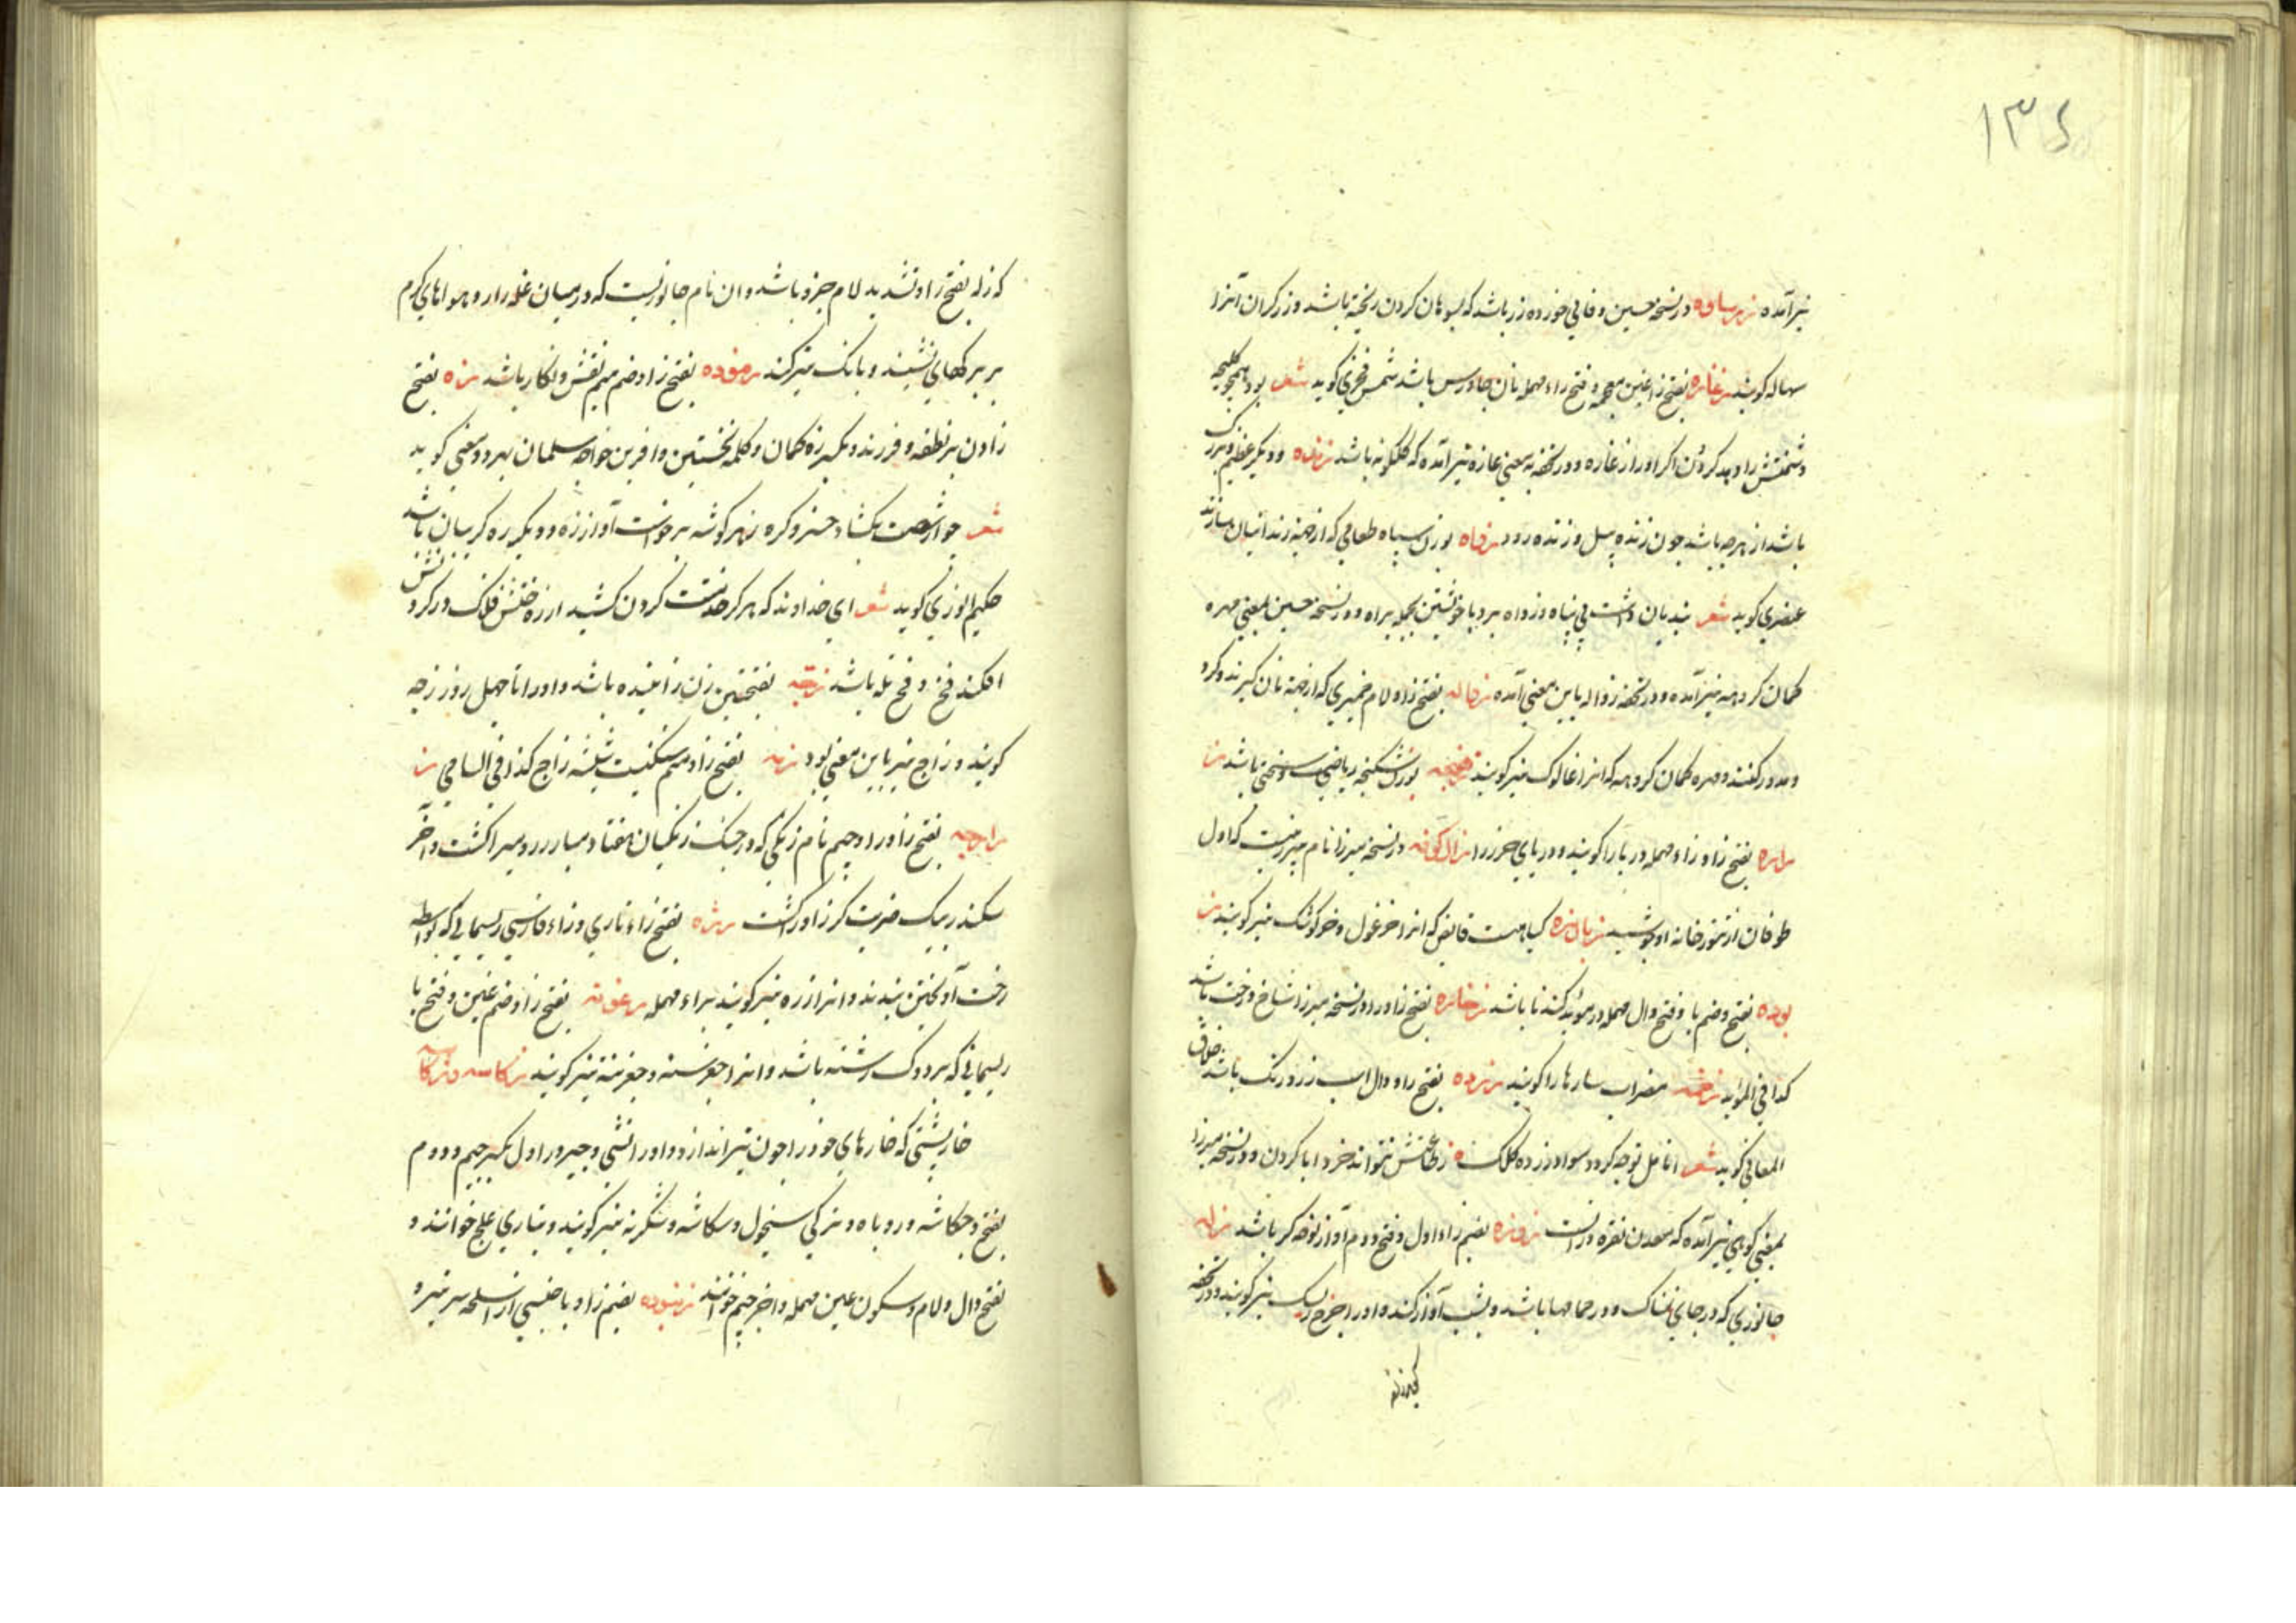 ۱۳۶
نیز آمده زرساوه در نسخه حسین وفائی خورده زر باشد که بسوهان کردن ریخته باشد و زرکران آنرا
سهاله کویند زغاره بفتح زا و غین معجمه و فتح راء مهمله نان جاورس باشد شمس فخری کوید شعر بود همچو
دشمنش را دهد کردون اکر او را زغاره و در تحفه به معنی غازه نیز آمده که کلکونه باشد زنده و دیکر عظیم و بزرک
باشد از هر چه باشد چون زنده پیل و زنده رود زواه بوزن سپاه طعامی که از جهة زندانیان سازند
عنصری کوید شعر بدیان داشت پی پناه زواه برد با خویشتن بجمله براه و در نسخه حسین بمعنی مهره
کمان کروهه نیز آمده و در تحفه زواله باین معنی آمده زواله بفتح زا و لام خمیری که از جهة نان کیرند و کرد
و مدور کنند و مهره کمان کروهه که انرا غالوک نیز کویند بوزن شکنجه ریاضی و سختی باشد
زراره بفتح زا و زاء مهمله دریا را کویند و دریای خزر را زال کوفه در نسخه میرزا نام پیرزنیست که اول
طوفان از تنور خانه او جوشید کیاهست قابض که انرا خرغول و خرکوشک نیز کویند
بوده بفتح و ضم با و فتح دال مهمله در موید کندنا باشد زخاره بفتح زا و را در نسخه میرزا شاخ درخت باشد
کذا فی الموید زخمه مضراب سازها را کویند زرده بفتح زا و دال اسب زرد رنک باشد خلاق
المعانی کوید شعر انامل تو چه کرد و سوار زرده کلک نتواند خرد ابا کردن و در نسخه میرزا
بمعنی کوهی نیز آمده که معدن نقره در انست زوزه بضم زاء اول و فتح دوم آواز نوحه کر باشد زله
جانوری که در جای نمناک و در حمامها باشد و بشب آواز کند و او را چرخ ریسک نیز کویند و در تحفه
که زله بفتح زا و تشدید لام جزد باشد و ان نام جانوریست که در میان غله زار و هواهای کرم
بر برکهای نشیند و بانک تیز کند زموده بفتح زا و ضم میم نقش و نکار باشد زه بفتح
زادن بر نطفه و فرزند و دیکر زه کمان و کلمه تحسین و افرین خواجه سلمان بهر دو معنی کوید
شعر چو از شست بکشاد خسرو کره ز هر کوشه برخواست آواز زه و دیکر زه کریبان باشد
حکیم انوری کوید شعر ای خداوند که هر کز خدمتت کردن کشید از زه فلک در کردنش
افکند فخ و فخ تله باشد زچه بفتحتین زن زائیده باشد و او را تا چهل روز زچه
کویند و زاج نیز باین معنی بود زمه بفتح زا و میم سنکیست شیشه زاج کذا فی السامی
زراجه بفتح زا و را و جیم نام زنکی که در جنک زنکیان هفتاد مبارز رومیرا کشت و آخر
سکندر بیک ضربت کرز او را کشت رژه بفتح زاء تازی و زاء فارسی ریسمانی که بواسطه
رخت آویختن بندند و انرا زره نیز کویند براء مهمله زغوته بفتح زا و ضم غین و فتح با
ریسمانی که بر دوک رشته باشد و انرا جغرسته و جغرشته نیز کویند زکاسه و زکاشه
خارپشتی که خارهای خود را چون تیر اندازد و او را تشی و چیزو را اول بکسر جیم و دوم
بفتح و جکاشه و روباه و ترکی سیخول و سکاشه و شکرنه نیز کویند و بتازی علج خوانند و
بفتح دال و لام و سکون عین مهمله و اخر جیم خوانند زنبوده بضم زا و با جنسی از اسلحه سر تیز و